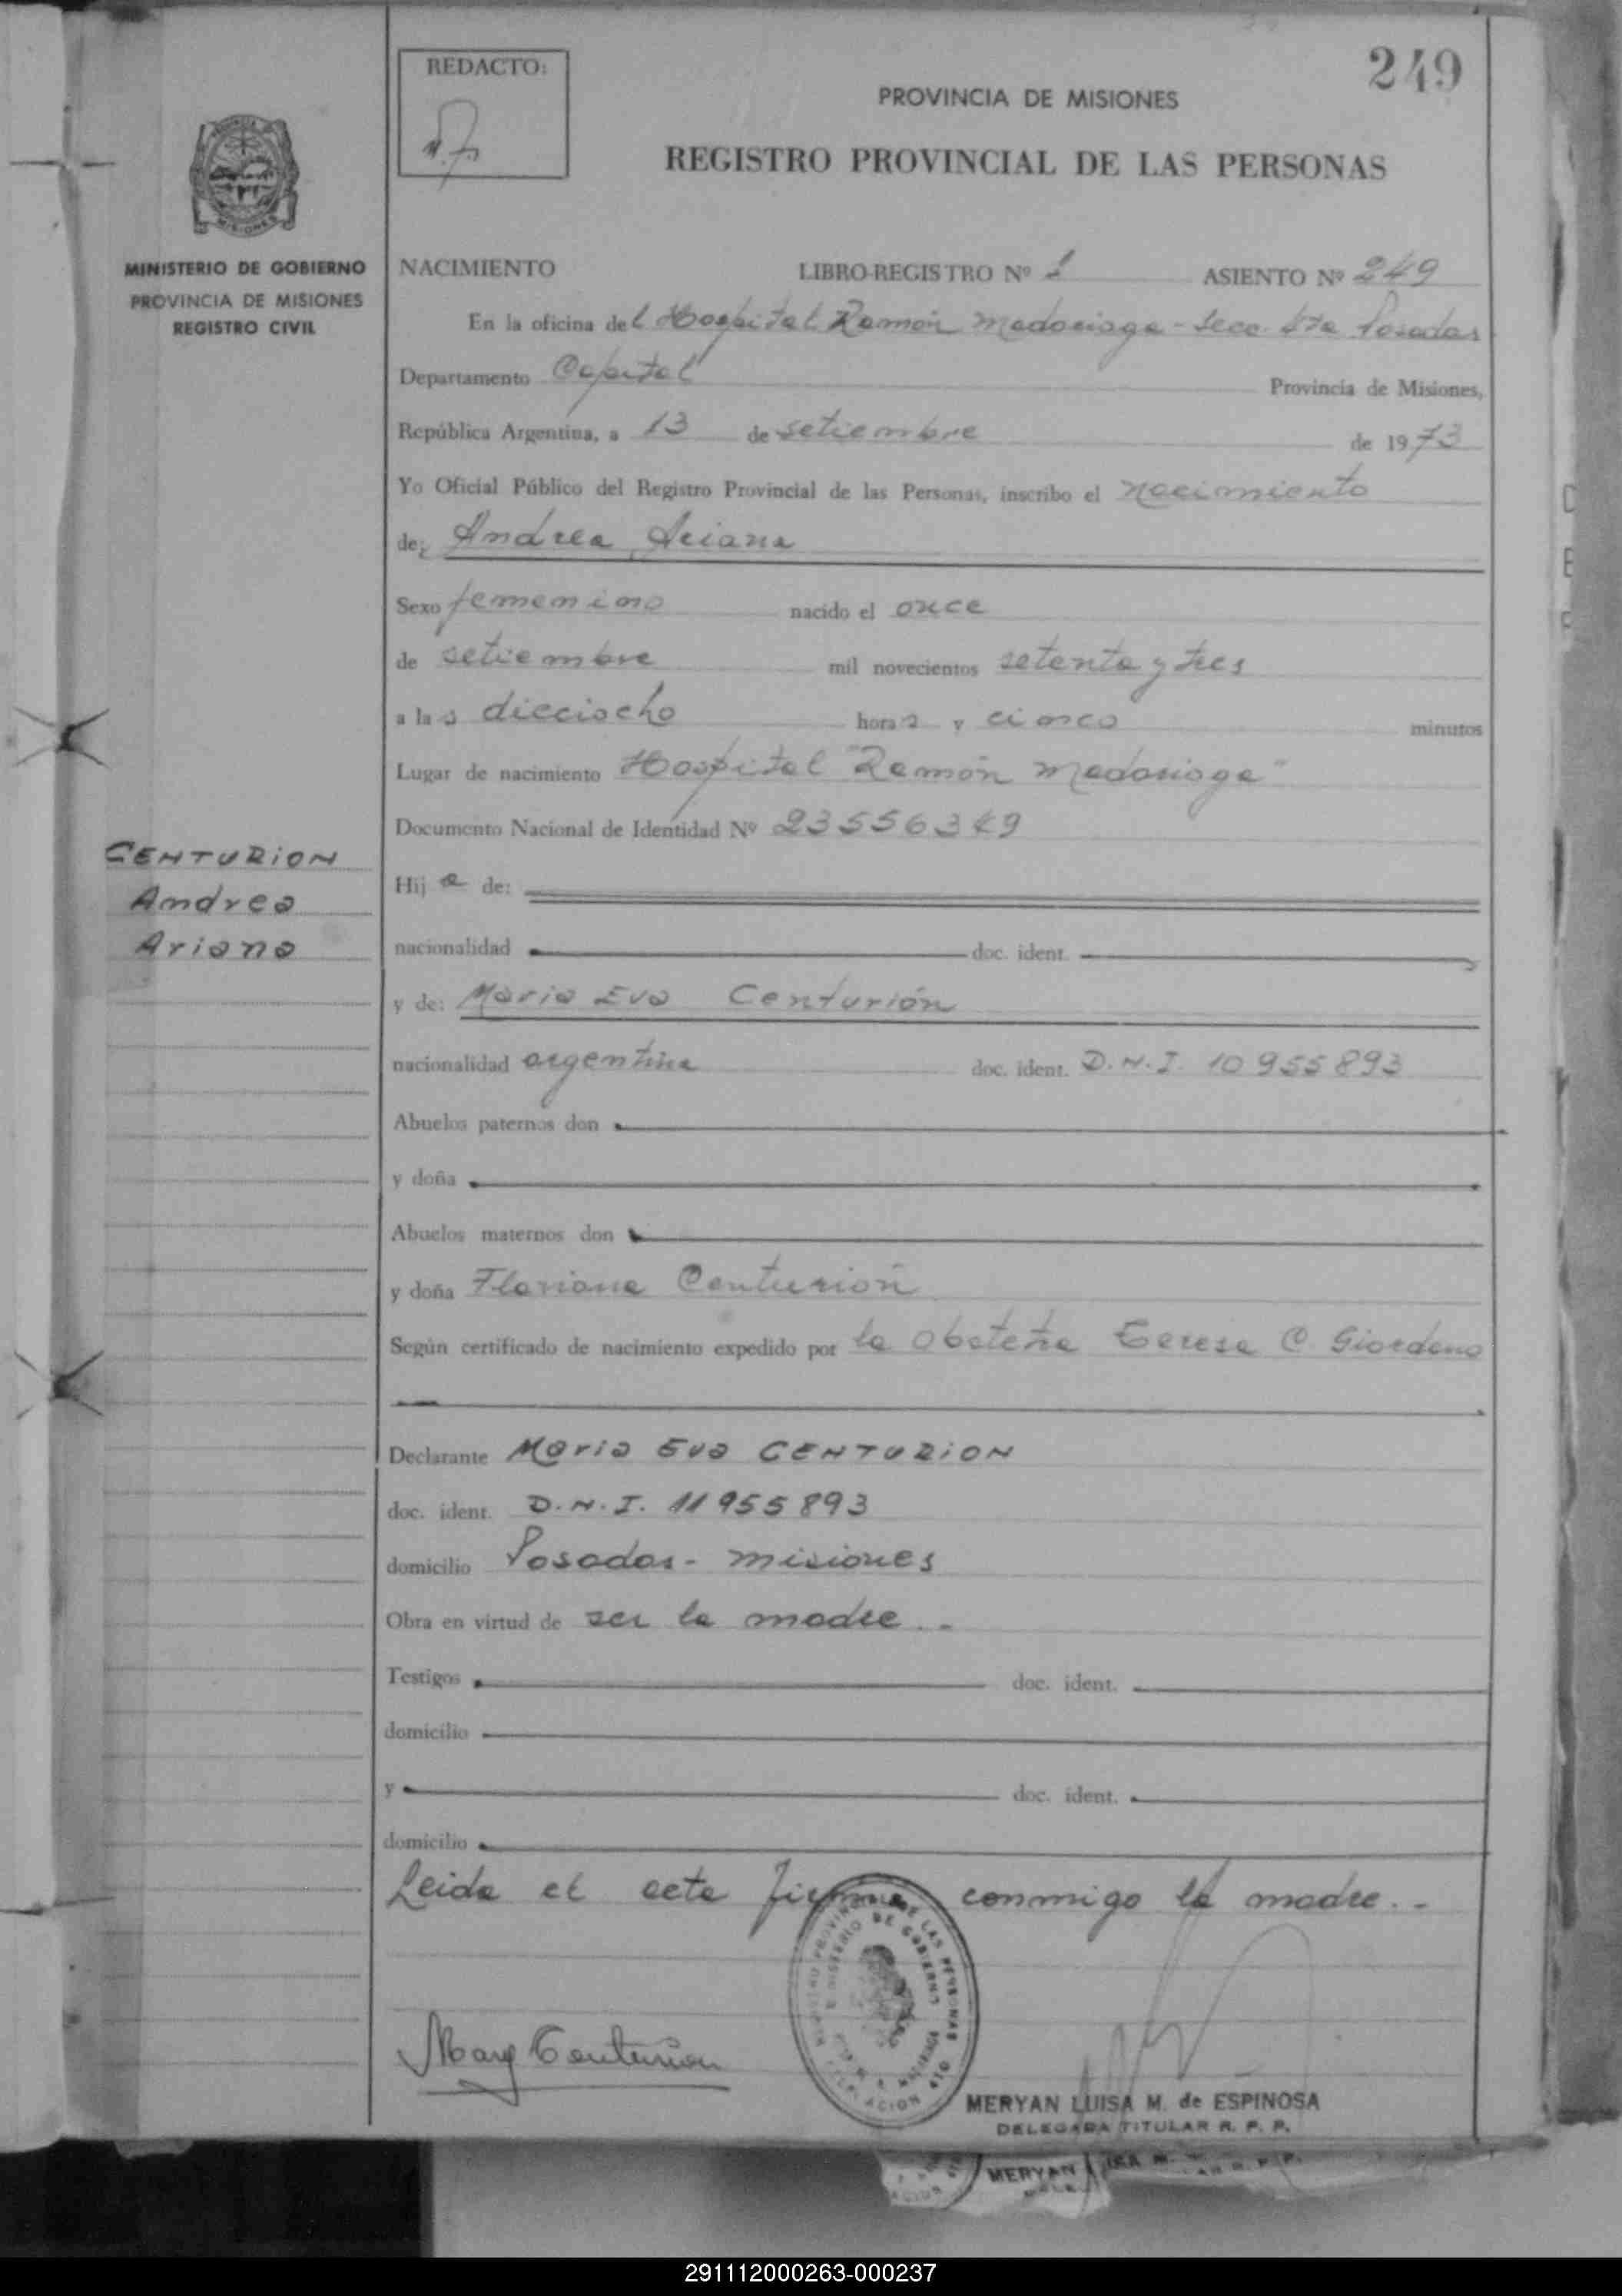 249
REDACTO:
PROVINCIA DE MISIONES
REGISTRO PROVINCIAL DE LAS PERSONAS
MINISTERIO DE GOBIERNO
PROVINCIA DE MISIONES
REGISTRO CIVIL
NACIMIENTO LIBRO-REGISTRO Nº 1 ASIENTO Nº 249
En la oficina del Hospital Ramón Madariaga - Secc. 4ta Posadas
Departamento Capital Provincia de Misiones,
República Argentina, a 13 de setiembre de 1973
Yo Oficial Público del Registro Provincial de las Personas, inscribo el nacimiento
de: Andrea Ariana
Sexo femenino nacido el once
de setiembre mil novecientos setenta y tres
a las dieciocho horas y cinco minutos
Lugar de nacimiento Hospital "Ramón Madariaga"
Documento Nacional de Identidad Nº 23556349
CENTURION
Andrea
Ariana
Hija de:
nacionalidad doc. ident.
y de: Maria Eva Centurión
nacionalidad argentina doc. ident. D.N.I. 10955893
Abuelos paternos don
y doña
Abuelos maternos don
y doña Floriana Centurión
Según certificado de nacimiento expedido por la Obstetra Teresa C. Giordano
Declarante Maria Eva CENTURION
doc. ident. D.N.I. 11955893
domicilio Posadas - misiones
Obra en virtud de ser la madre.-
Testigos doc. ident.
domicilio
y doc. ident.
domicilio
Leida el acta firma conmigo la madre.-
REGISTRO PROVINCIAL DE LAS PERSONAS
MINISTERIO DE GOBIERNO
Mary Centurion
MERYAN LUISA M. de ESPINOSA
DELEGADA TITULAR R. P. P.
MERYAN
291112000263-000237